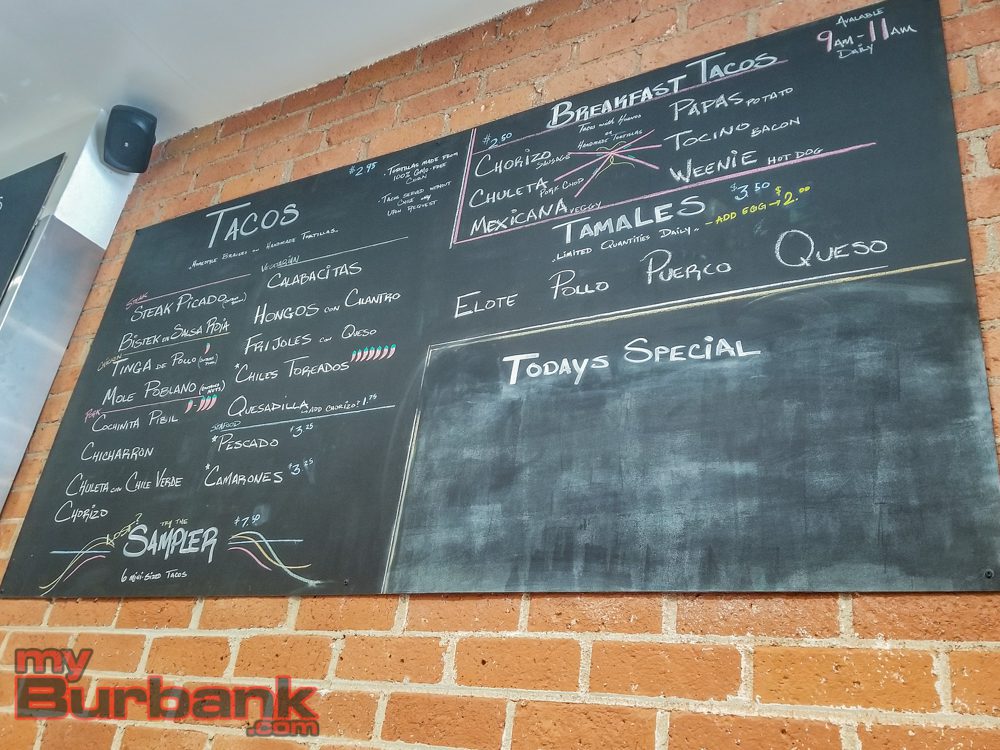 TACOS
$2.95
TORTILLAS MADE FROM
100% GMO-FREE
CORN
TACO SERVED WITHOUT
CHILE
UPON REQUEST
HOMESTYLE BRAISES ON HANDMADE TORTILLAS
STEAK
STEAK PICADO
BISTEK EN SALSA ROJA
CHICKEN
TINGA DE POLLO
MOLE POBLANO
PORK
COCHINITA PIBIL
CHICHARRON
CHULETA CON CHILE VERDE
CHORIZO
VEGETARIAN
CALABACITAS
HONGOS CON CILANTRO
FRIJOLES CON QUESO
*CHILES TOREADOS
QUESADILLA ADD CHORIZO! 1.75
SEAFOOD
*PESCADO $3.25
*CAMARONES
TRY THE
SAMPLER
6 MINI-SIZED TACOS
BREAKFAST TACOS
AVAILABLE
9AM-11AM
DAILY
$2.50
TACOS WITH HUEVOS
ON
HANDMADE TORTILLAS
CHORIZO SAUSAGE
CHULETA PORK CHOP
MEXICANA VEGGY
PAPAS POTATO
TOCINO BACON
WEENIE HOT DOG
TAMALES $3.50
-ADD EGG→$2.00
.LIMITED QUANTITIES DAILY.
ELOTE POLLO PUERCO QUESO
TODAYS SPECIAL
my
Burbank
.com